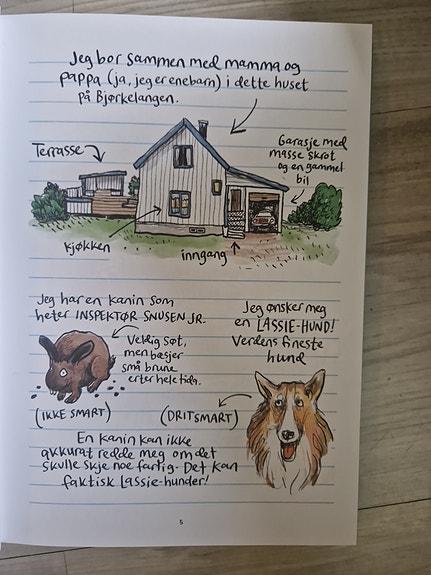 Jeg bor sammen med mamma og
pappa (ja, jeg er enebarn) i dette huset
på Bjørkelangen.
Terrasse
Garasje med
masse skrot
og en gammel
bil
kjøkken
inngang
Jeg har en kanin som
heter INSPEKTØR SNUSEN JR.
Veldig søt,
men bæsjer
små brune
erter hele tida.
(IKKE SMART)
Jeg ønsker meg
en LASSIE-HUND!
Verdens fineste
hund
(DRITSMART)
En kanin kan ikke
akkurat redde meg om det
skulle skje noe farlig. Det kan
faktisk LASSIE-hunder!
5